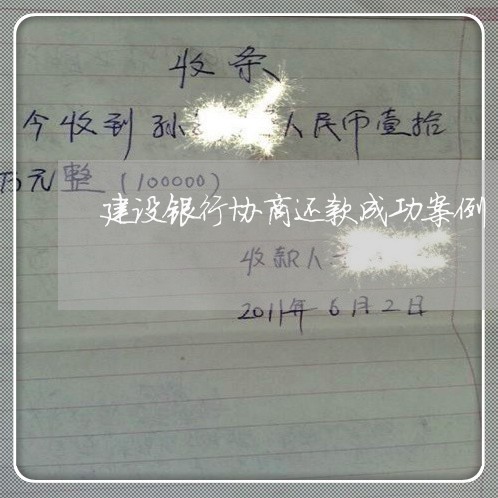 收条
今收到孙 人民币壹拾
万元整（100000）
建设银行协商还款成功案例
收款人
2011年6月2日